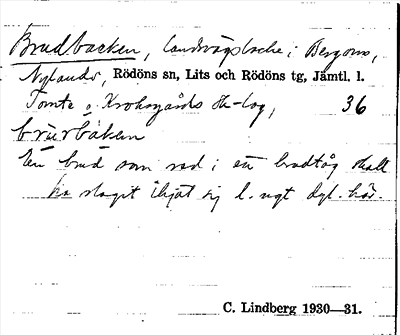 Brudbacken, landsvägsbacke i Bergoms,
Nylands, Rödöns sn, Lits och Rödöns tg, Jämtl. l.
Tomte o. Kroksgårds sk-lag, 36
brurbàken
En brud som red i ett brudtåg skall
ha slagit ihjäl sig l. ngt dyl. här.
C. Lindberg 1930—31.